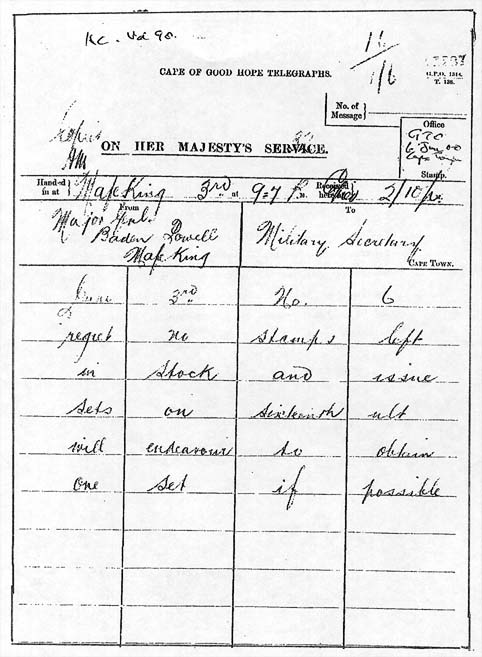 KC. Vol 90.
CAPE OF GOOD HOPE TELEGRAPHS.
G.P.O.
T. 138.
No. of Message
Office
Stamp.
ON HER MAJESTY'S SERVICE.
Handed in at Mafeking 3rd at 9-7 Received here at 2/10 p.m.
From
To
Major Genl.
Baden Powell
Mafeking
Military Secretary
CAPE TOWN.
June 3rd No. 6
regret no stamps left
in stock and issue
sets on sixteenth ult
will endeavour to obtain
one set if possible